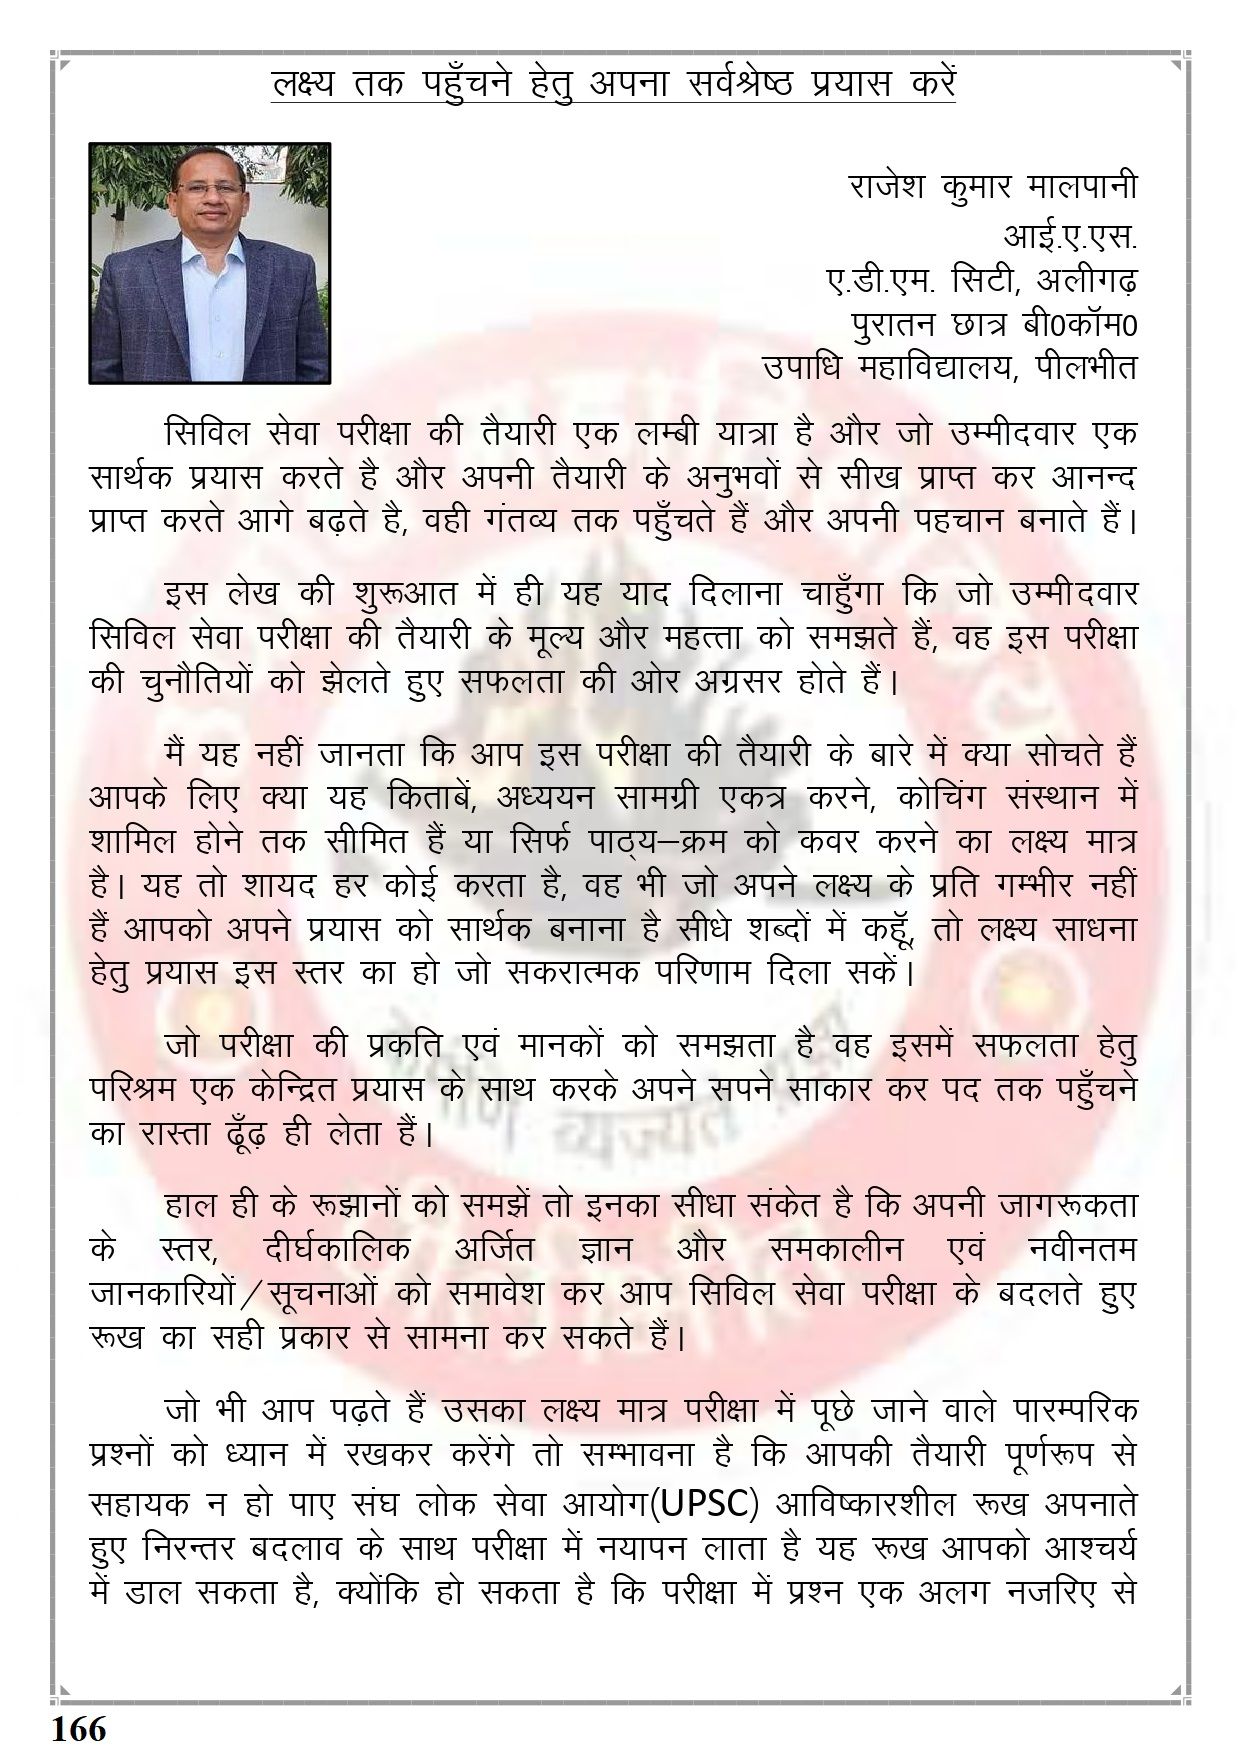 लक्ष्य तक पहुँचने हेतु अपना सर्वश्रेष्ठ प्रयास करें
राजेश कुमार मालपानी
आई.ए.एस.
ए.डी.एम. सिटी, अलीगढ़
पुरातन छात्र बी0कॉम0
उपाधि महाविद्यालय, पीलभीत
सिविल सेवा परीक्षा की तैयारी एक लम्बी यात्रा है और जो उम्मीदवार एक
सार्थक प्रयास करते है और अपनी तैयारी के अनुभवों से सीख प्राप्त कर आनन्द
प्राप्त करते आगे बढ़ते है, वही गंतव्य तक पहुँचते हैं और अपनी पहचान बनाते हैं।
इस लेख की शुरूआत में ही यह याद दिलाना चाहुँगा कि जो उम्मीदवार
सिविल सेवा परीक्षा की तैयारी के मूल्य और महत्ता को समझते हैं, वह इस परीक्षा
की चुनौतियों को झेलते हुए सफलता की ओर अग्रसर होते हैं।
मैं यह नहीं जानता कि आप इस परीक्षा की तैयारी के बारे में क्या सोचते हैं
आपके लिए क्या यह किताबें, अध्ययन सामग्री एकत्र करने, कोचिंग संस्थान में
शामिल होने तक सीमित हैं या सिर्फ पाठ्य–क्रम को कवर करने का लक्ष्य मात्र
है। यह तो शायद हर कोई करता है, वह भी जो अपने लक्ष्य के प्रति गम्भीर नहीं
हैं आपको अपने प्रयास को सार्थक बनाना है सीधे शब्दों में कहूॅ, तो लक्ष्य साधना
हेतु प्रयास इस स्तर का हो जो सकरात्मक परिणाम दिला सकें।
जो परीक्षा की प्रकति एवं मानकों को समझता है वह इसमें सफलता हेतु
परिश्रम एक केन्द्रित प्रयास के साथ करके अपने सपने साकार कर पद तक पहुँचने
का रास्ता ढूँढ़ ही लेता हैं।
हाल ही के रूझानों को समझें तो इनका सीधा संकेत है कि अपनी जागरूकता
के स्तर, दीर्घकालिक अर्जित ज्ञान और समकालीन एवं नवीनतम
जानकारियों/सूचनाओं को समावेश कर आप सिविल सेवा परीक्षा के बदलते हुए
रूख का सही प्रकार से सामना कर सकते हैं।
जो भी आप पढ़ते हैं उसका लक्ष्य मात्र परीक्षा में पूछे जाने वाले पारम्परिक
प्रश्नों को ध्यान में रखकर करेंगे तो सम्भावना है कि आपकी तैयारी पूर्णरूप से
सहायक न हो पाए संघ लोक सेवा आयोग(UPSC) आविष्कारशील रूख अपनाते
हुए निरन्तर बदलाव के साथ परीक्षा में नयापन लाता है यह रूख आपको आश्चर्य
में डाल सकता है, क्योंकि हो सकता है कि परीक्षा में प्रश्न एक अलग नजरिए से
166